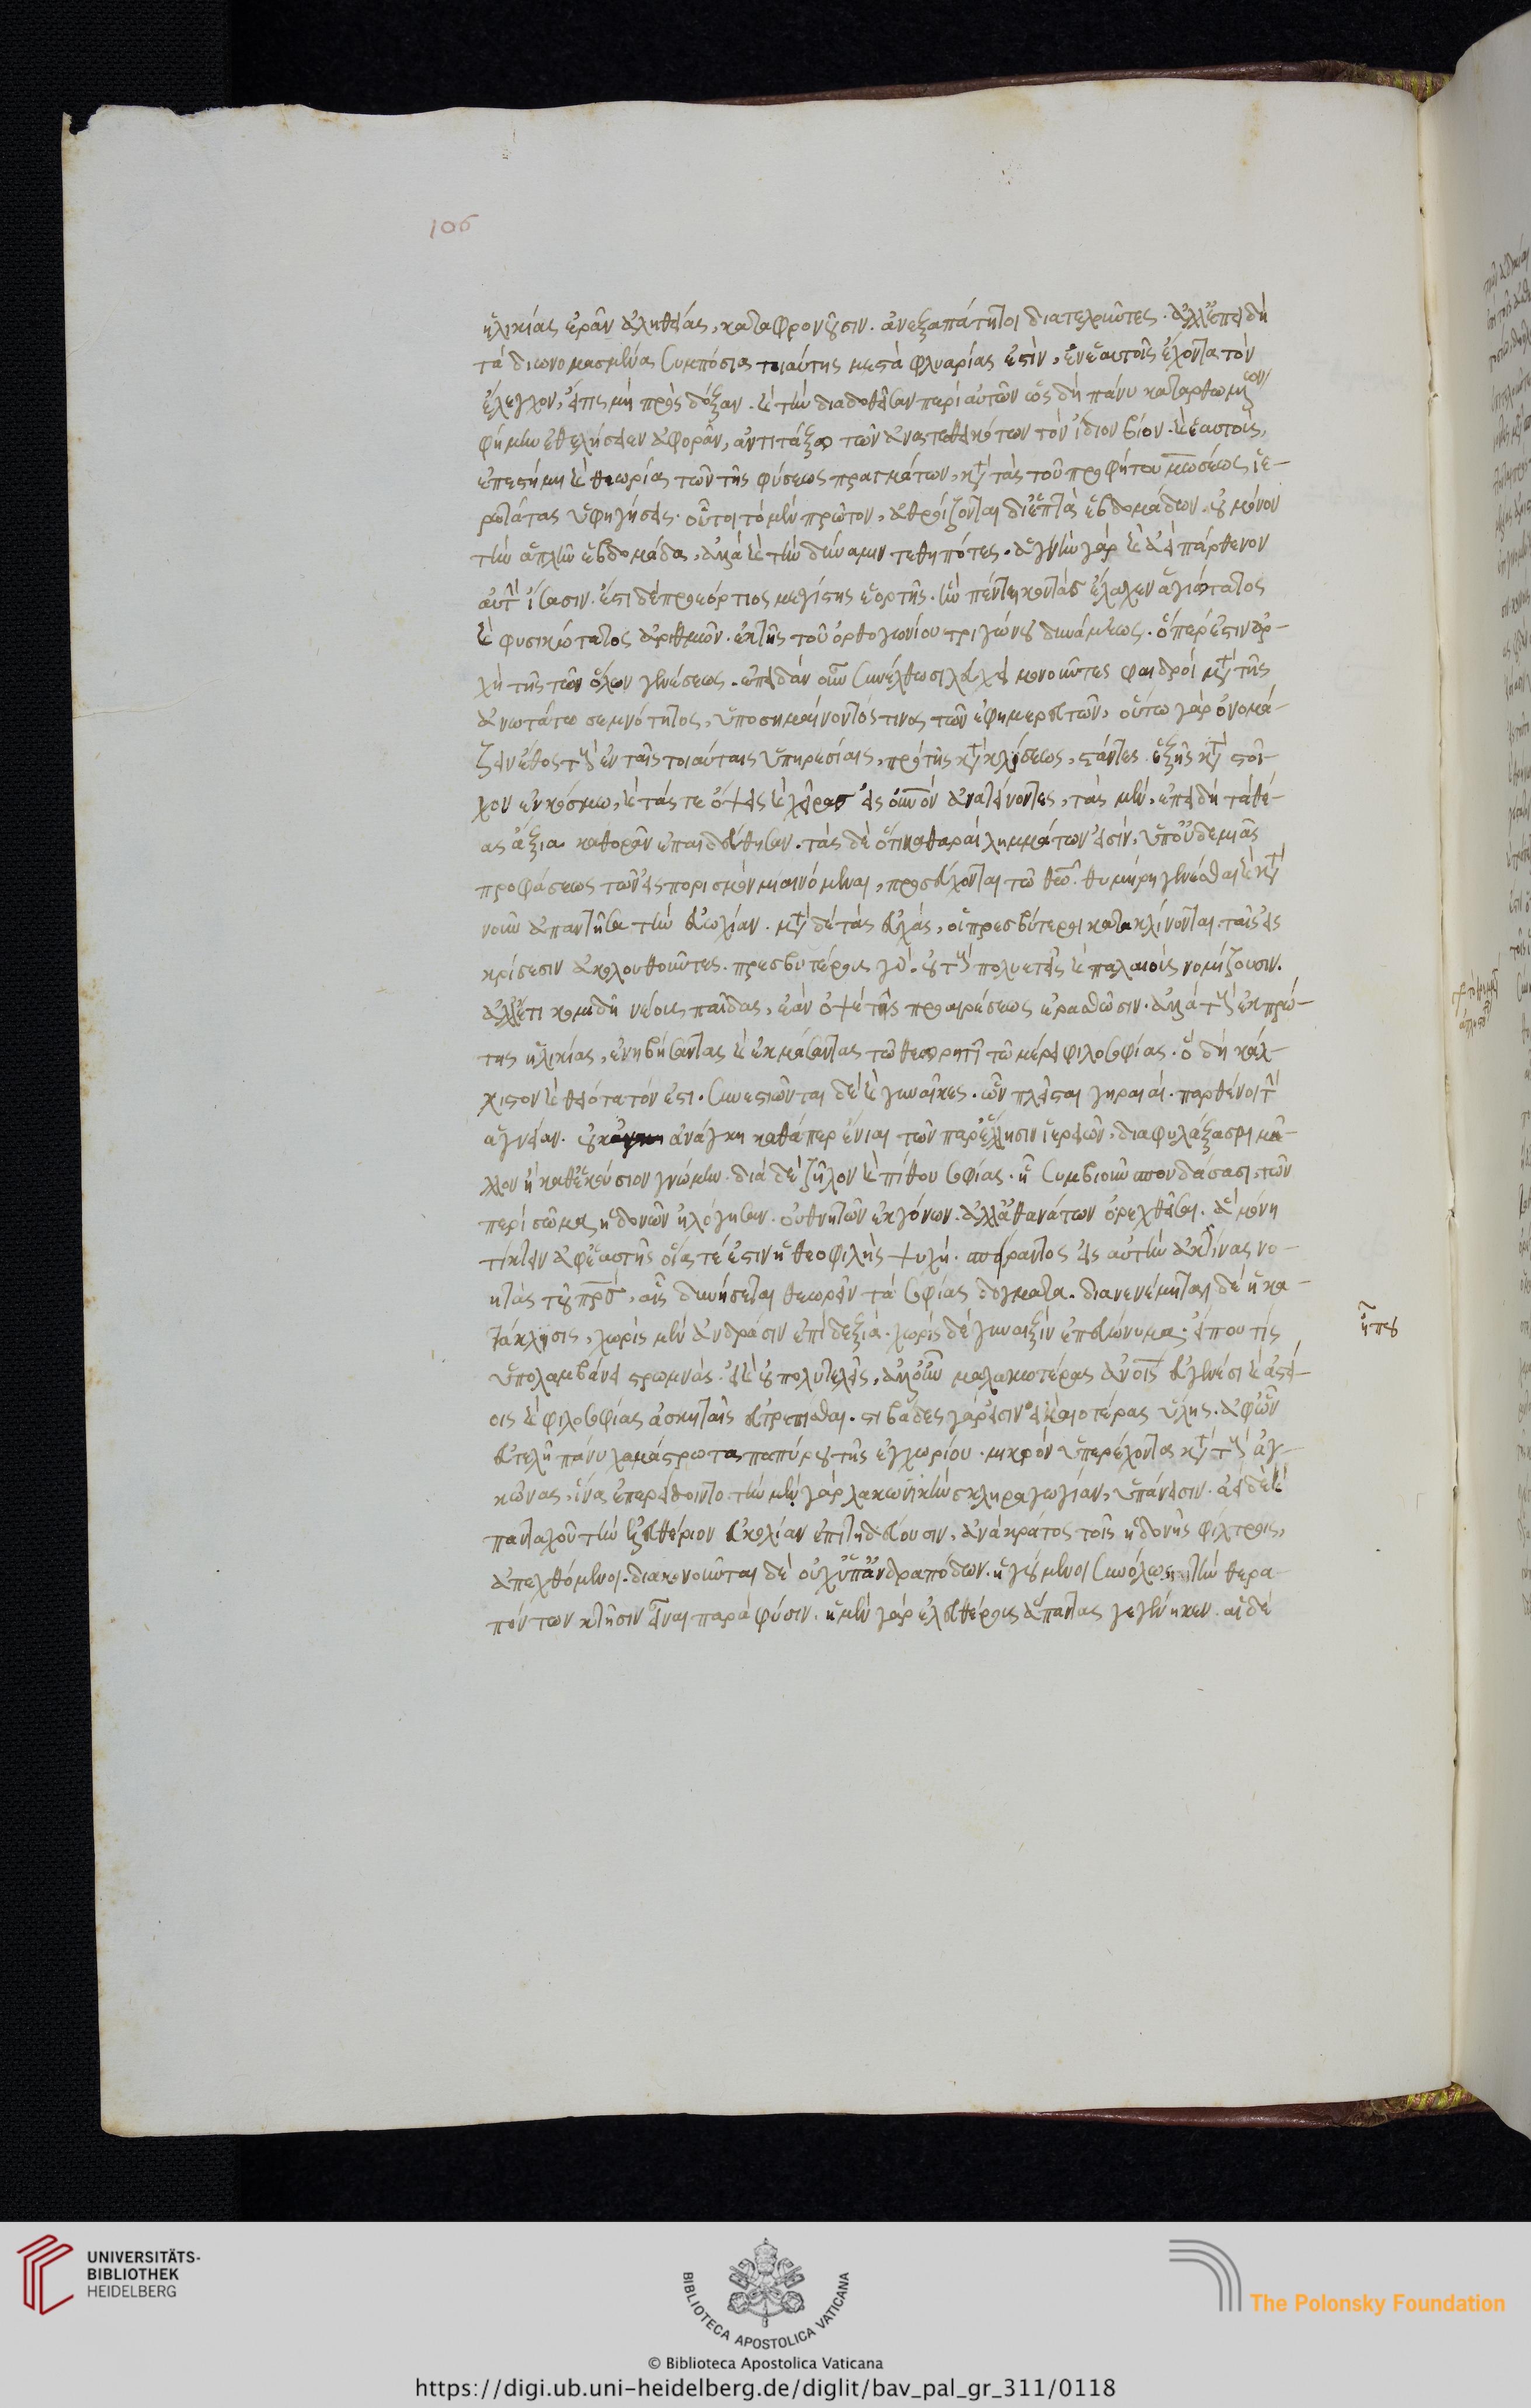 106
ἡλικίας ἐρᾶν ἀληθείας, καταφρονοῦσιν. ἀνεξαπάτητοι διατελοῦντες. ἀλλ' ἐπειδὴ
τὰ διωνομασμένα συμπόσια τοιαύτης μεστὰ φλυαρίας ἐστὶν, ἐν ἑαυτοῖς ἔχοντα τὸν
ἔλεγχον, εἴτις μὴ πρὸς δόξαν. καὶ τὴν διαδοθεῖσαν περὶ αὐτῶν ὡς δὴ πάνυ κατορθωμένων
φήμην ἐθελήσειεν ἀφορᾶν, ἀντιτάξω τῶν ἀνατεθεικότων τὸν ἴδιον βίον. καὶ ἑαυτοὺς,
ἐπιστήμῃ καὶ θεωρίᾳ τῶν τῆς φύσεως πραγμάτων, κατὰ τὰς τοῦ προφήτου μωσέως ἱε-
ρωτάτας ὑφηγήσεις. οὗτοι τὸ μὲν πρῶτον, ἀθροίζονται δι' ἑπτὰ ἑβδομάδων. οὐ μόνον
τὴν ἁπλῆν ἑβδομάδα, ἀλλὰ καὶ τὴν δύναμιν τεθηπότες. ἁγνὴν γὰρ καὶ ἀειπάρθενον
αὐτὴν ἴσασιν. ἔστι δὲ προεόρτιος μεγίστης ἑορτῆς. ἣν πεντηκοντὰς ἔλαχεν ἁγιώτατος
καὶ φυσικώτατος ἀριθμῶν. ἐκ τῆς τοῦ ὀρθογωνίου τριγώνου δυνάμεως. ὅπερ ἐστὶν ἀρ-
χὴ τῆς τῶν ὅλων γενέσεως. ἐπειδὰν οὖν συνέλθωσι λευχειμονοῦντες φαιδροὶ μετὰ τῆς
ἀνωτάτω σεμνότητος, ὑποσημαίνοντός τινος τῶν ἐφημερευτῶν, οὕτω γὰρ ὀνομά-
ζειν ἔθος τοὺς ἐν ταῖς τοιαύταις ὑπηρεσίαις, πρὸ τῆς κατακλίσεως, στάντες ἑξῆς κατὰ στοῖ-
χον ἐν κόσμῳ, καὶ τάς τε ὄψεις καὶ χεῖρας εἰς οὐρανὸν ἀνατείνοντες, τὰς μὲν, ἐπειδὴ τὰ θέ-
ας ἄξια καθορᾶν ἐπαιδεύθησαν. τὰς δὲ ὅτι καθαραὶ λημμάτων εἰσίν, ὑπ' οὐδεμιᾶς
προφάσεως τῶν εἰς πορισμὸν μιαινόμεναι, προσεύχονται τῷ θεῷ. θυμήρη γενέσθαι καὶ κατὰ
νοῦν ἀπαντῆσαι τὴν εὐωχίαν. μετὰ δὲ τὰς εὐχὰς, οἱ πρεσβύτεροι κατακλίνονται. ταῖς εἰς
κρίσεσιν ἀκολουθοῦντες. πρεσβυτέρους γὰρ. οὐ τοὺς πολυετεῖς καὶ παλαιοὺς νομίζουσιν.
ἀλλ' ἔτι κομιδῇ νέους παῖδας, ἐὰν ὀψὲ τῆς προαιρέσεως ἐρασθῶσιν. ἀλλὰ τοὺς ἐκ πρώ-
της ἡλικίας, ἐνηβήσαντας καὶ ἐνακμάσαντας τῷ θεωρητικῷ μέρει φιλοσοφίας. ὃ δὴ κάλ-
λιστον καὶ θειότατόν ἐστι. συνεστιῶνται δὲ καὶ γυναῖκες. ὧν πλεῖσται γηραιαί. παρθένοι τὴν
ἁγνείαν. οὐκ ἀνάγκῃ καθάπερ ἔνιαι τῶν παρ' ἕλλησιν ἱερειῶν, διαφυλάξασαι μᾶ-
λλον ἢ καθ' ἑκούσιον γνώμην. διὰ δὲ ζῆλον καὶ πόθον σοφίας. ᾗ συμβιοῦν σπουδάσασαι, τῶν
περὶ σῶμα ἡδονῶν ἠλόγησαν. οὐ θνητῶν ἐκγόνων. ἀλλ' ἀθανάτων ὀρεχθεῖσαι. ἃ μόνη
τίκτειν ἀφ' ἑαυτῆς οἵα τέ ἐστιν ἡ θεοφιλὴς ψυχή. σπείραντος εἰς αὐτὴν ἀκτῖνας νο-
ητὰς τοῦ πρς, αἷς δυνήσεται θεωρεῖν τὰ σοφίας δόγματα. διανενέμηται δὲ ἡ κα-
τάκλισις, χωρὶς μὲν ἀνδράσιν ἐπὶ δεξιὰ. χωρὶς δὲ γυναιξὶν ἐπ' εὐώνυμα. εἴ που τίς
ὑπολαμβάνει στρωμνὰς. εἰ καὶ οὐ πολυτελεῖς, ἀλλ' οὖν μαλακωτέρας ἀνοις εὐγενέσι καὶ ἀστεί-
οις καὶ φιλοσοφίας ἀσκηταῖς εὐτρεπίσθαι. στιβάδες γάρ εἰσιν εἰκαιοτέρας ὕλης. ἀφ' ὧν
εὐτελῆ πάνυ χαμαίστρωτα παπύρου τῆς ἐγχωρίου. μικρὸν ὑπερέχοντα κατὰ τοὺς ἀγ-
κῶνας, ἵνα ἐπερείδοιντο. τὴν μὲν γὰρ λακωνικὴν σκληραγωγίαν, ὑπανεῖσιν. ἀεὶ δὲ καὶ
πανταχοῦ τὴν ἐλευθέριον εὐκολίαν ἐπιτηδεύουσιν, ἀνὰ κράτος τοῖς ἡδονῆς φίλτροις,
ἀπεχθόμενοι. διακονοῦνται δὲ οὐχ ὑπ' ἀνδραπόδων. ἡγούμενοι συνόλως τὴν θερα-
πόντων κτῆσιν εἶναι παρὰ φύσιν. ἡ μὲν γὰρ ἐλευθέρους ἅπαντας γεγέννηκεν. αἱ δέ
ἤπου
UNIVERSITÄTS-
BIBLIOTHEK
HEIDELBERG
BIBLIOTECA APOSTOLICA VATICANA
The Polonsky Foundation
© Biblioteca Apostolica Vaticana
https://digi.ub.uni-heidelberg.de/diglit/bav_pal_gr_311/0118